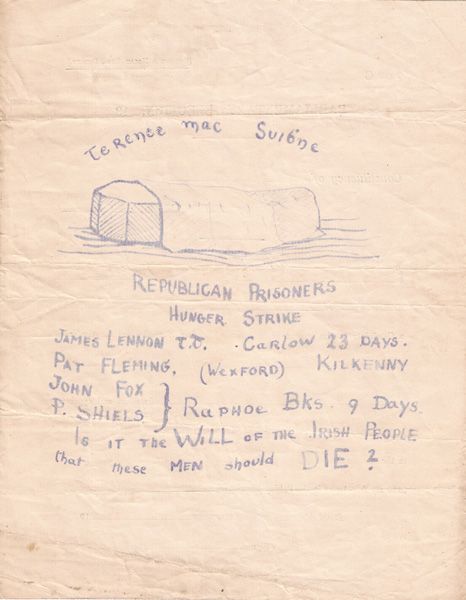 Terence Mac Suibne
REPUBLICAN PRISONERS
HUNGER STRIKE
JAMES LENNON T.D. . CARLOW 23 DAYS.
PAT FLEMING. (WEXFORD) KILKENNY
JOHN FOX
P. SHIELS } RAPHOE BKS. 9 DAYS.
IS IT THE WILL OF THE IRISH PEOPLE
that these MEN should DIE ?